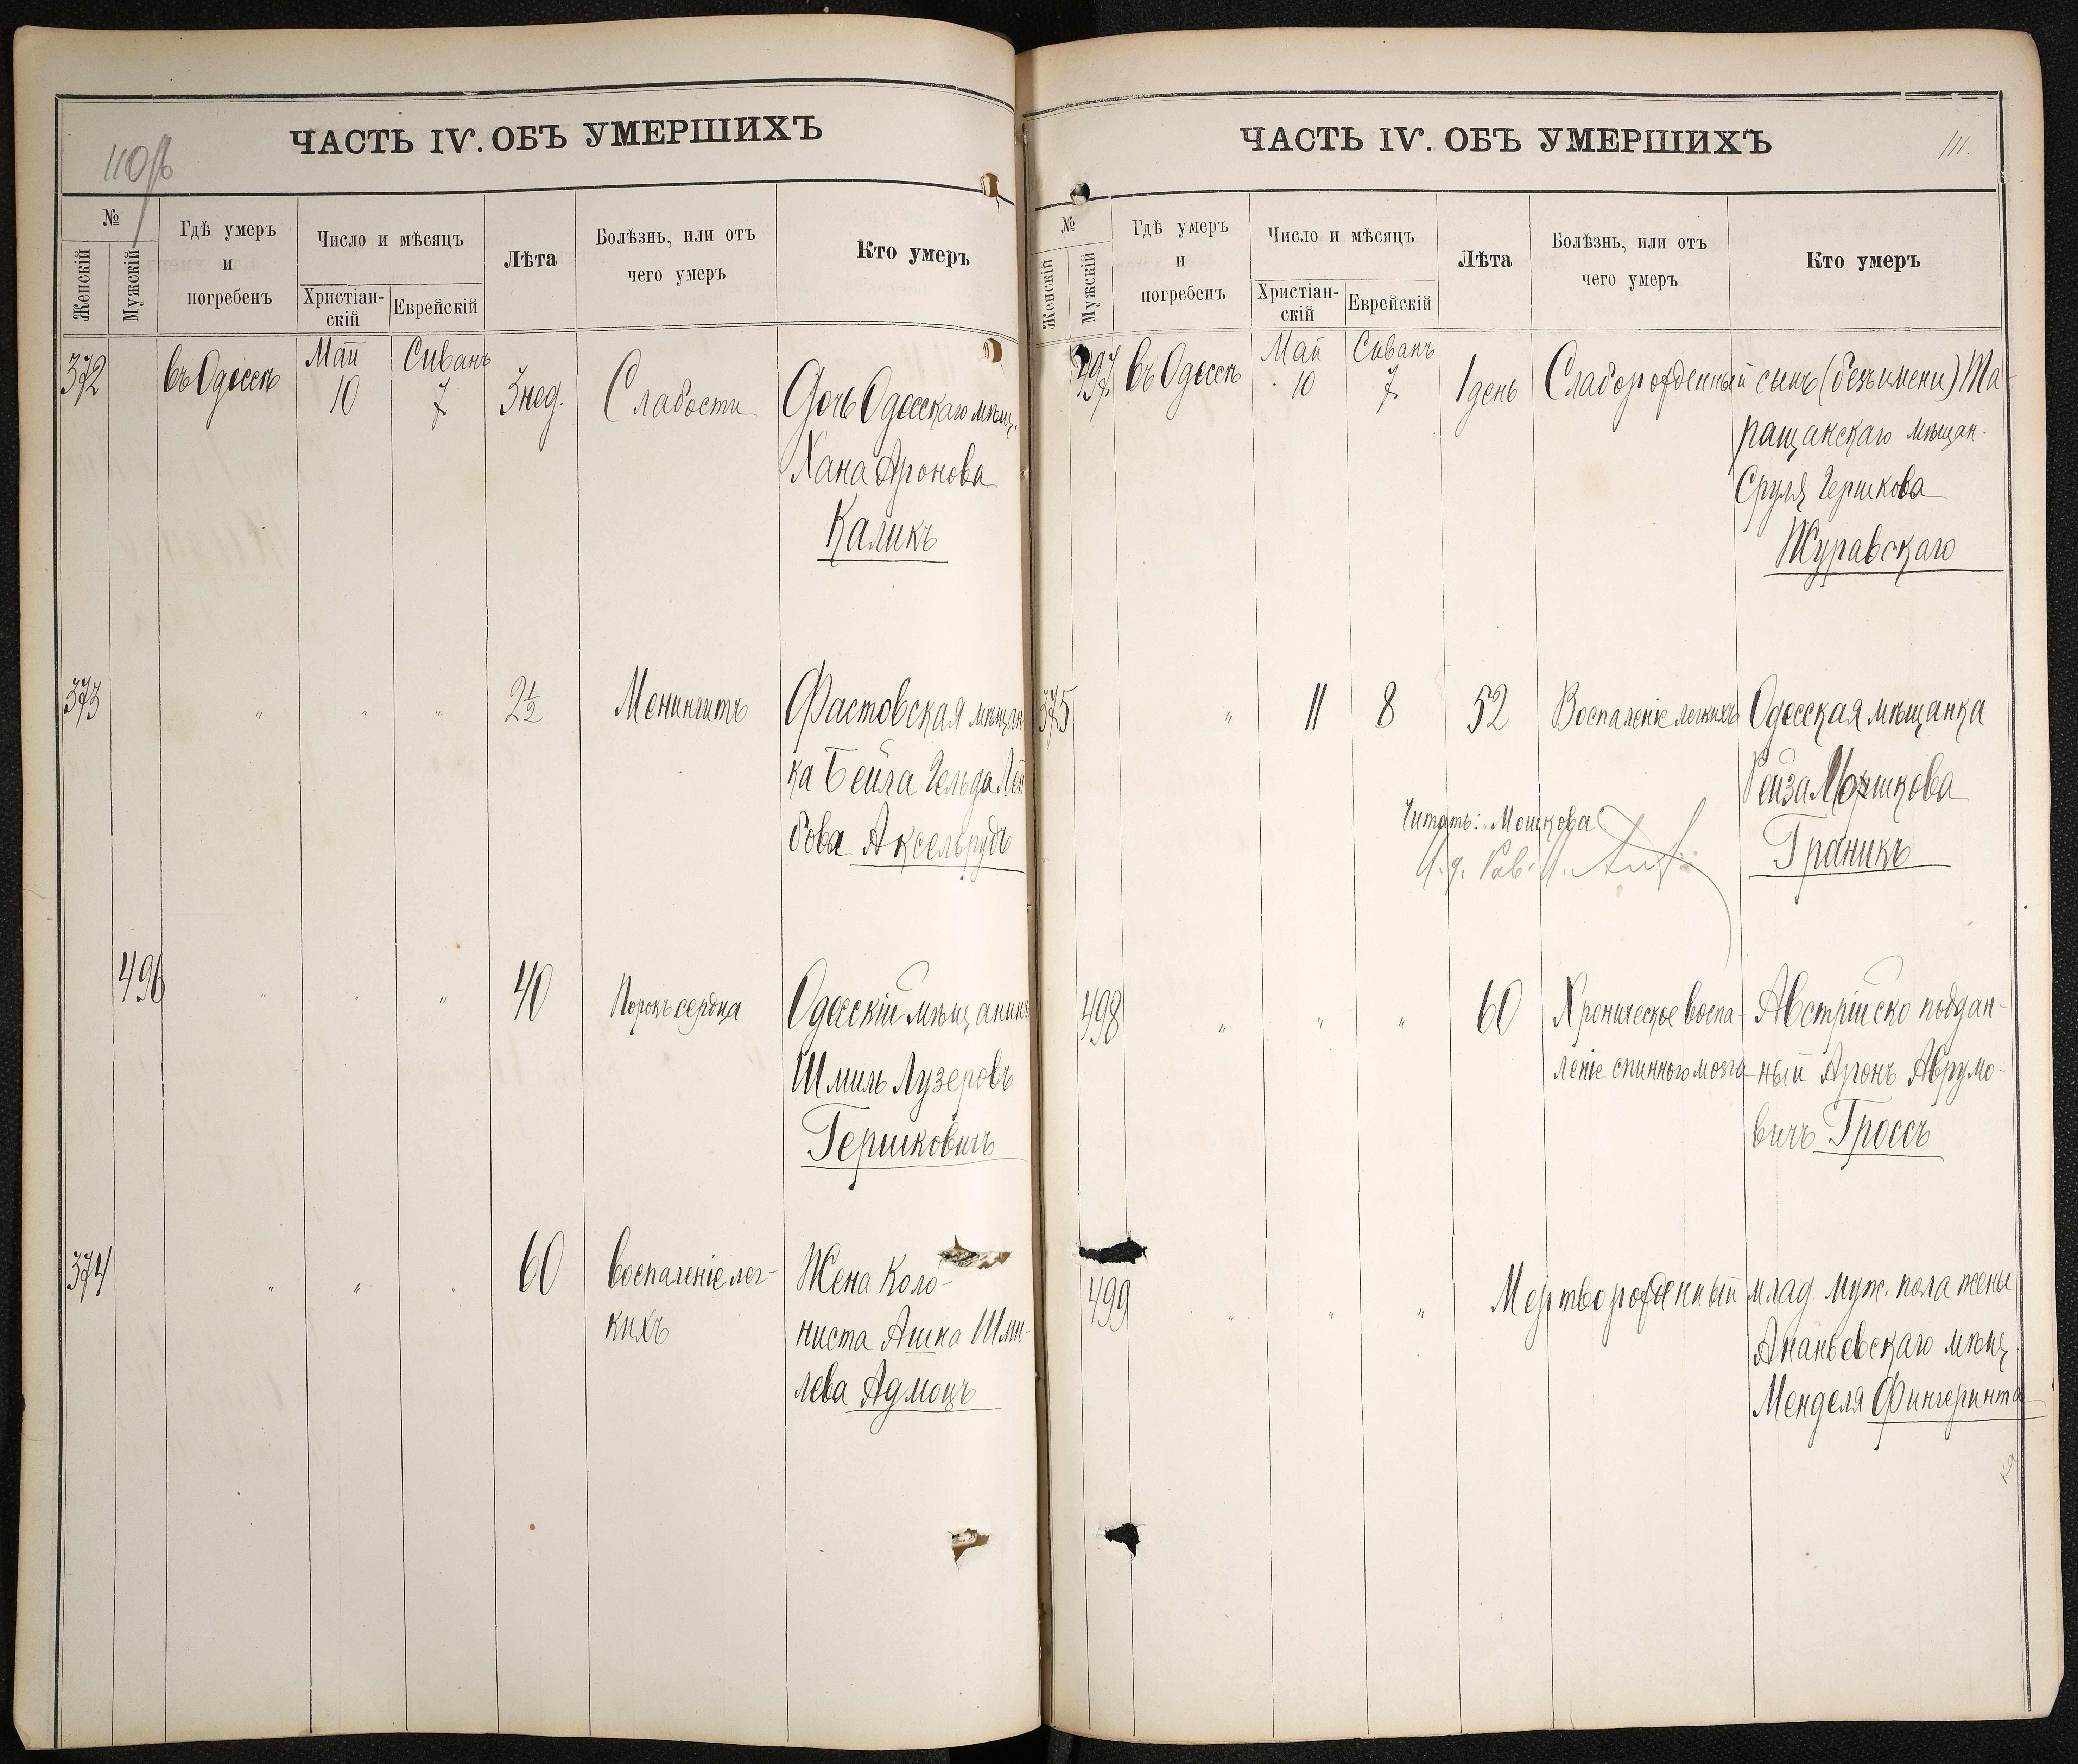 110 об
ЧАСТЬ IV. ОБЪ УМЕРШИХЪ
№
Женскій
Мужскій
Гдѣ умеръ
и
погребенъ
Число и мѣсяцъ
Христіан-
скій
Еврейскій
Лѣта
Болѣзнь, или отъ
чего умеръ
Кто умеръ
372 въ Одессѣ Май 10 Сиванъ 7 3 нед. Слабости Дочь Одесскаго мѣщ.
Хана Аронова
Каликъ
373 " " " 2½ Менингитъ Фастовская мѣщан-
ка Бейла Гельда Лей
бова Аксельрудъ
496 " " " 40 Порокъ сердца Одесскій мѣщанинъ
Шмиль Лузеровъ
Гершковичъ
374 " " " 60 воспаленіе лег- Жена Коло-
кихъ ниста Ашна Шми-
лева Адмоцъ
ЧАСТЬ IV. ОБЪ УМЕРШИХЪ
111.
№
Женскій
Мужскій
Гдѣ умеръ
и
погребенъ
Число и мѣсяцъ
Христіан-
скій
Еврейскій
Лѣта
Болѣзнь, или отъ
чего умеръ
Кто умеръ
497 въ Одессѣ Май 10 Сиванъ 7 1 день Слаборожденный сынъ (безъ имени) Та-
ращанскаго мѣщан.
Сруля Гершкова
Журавскаго
375 " 11 8 52 Воспаленіе легкихъ Одесская мѣщанка
Рейза Мошкова
Читать: Мошкова
Граникъ
И. д. Рав.
498 " " " 60 Хроническое воспа- Австрійско поддан-
леніе спинного мозга ный Аронъ Аврумо-
вичъ Гроссъ
499 " " " Мертворожденный млад. муж. пола жены
Ананьевскаго мѣщ.
Менделя Фингеринта